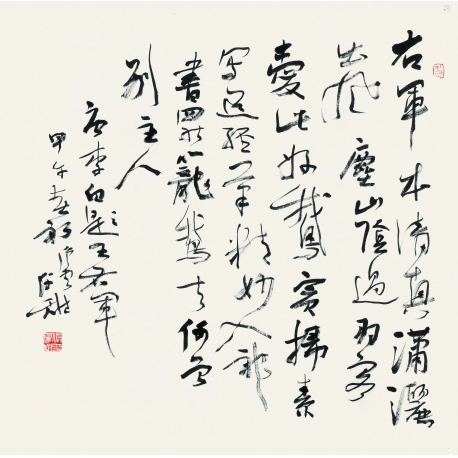 右軍本清真瀟灑
出風塵山陰過羽客
愛此好鵝賓掃素
寫道經筆精妙入神
書罷籠鵝去何曾
別主人
唐李白題王右軍
甲午春